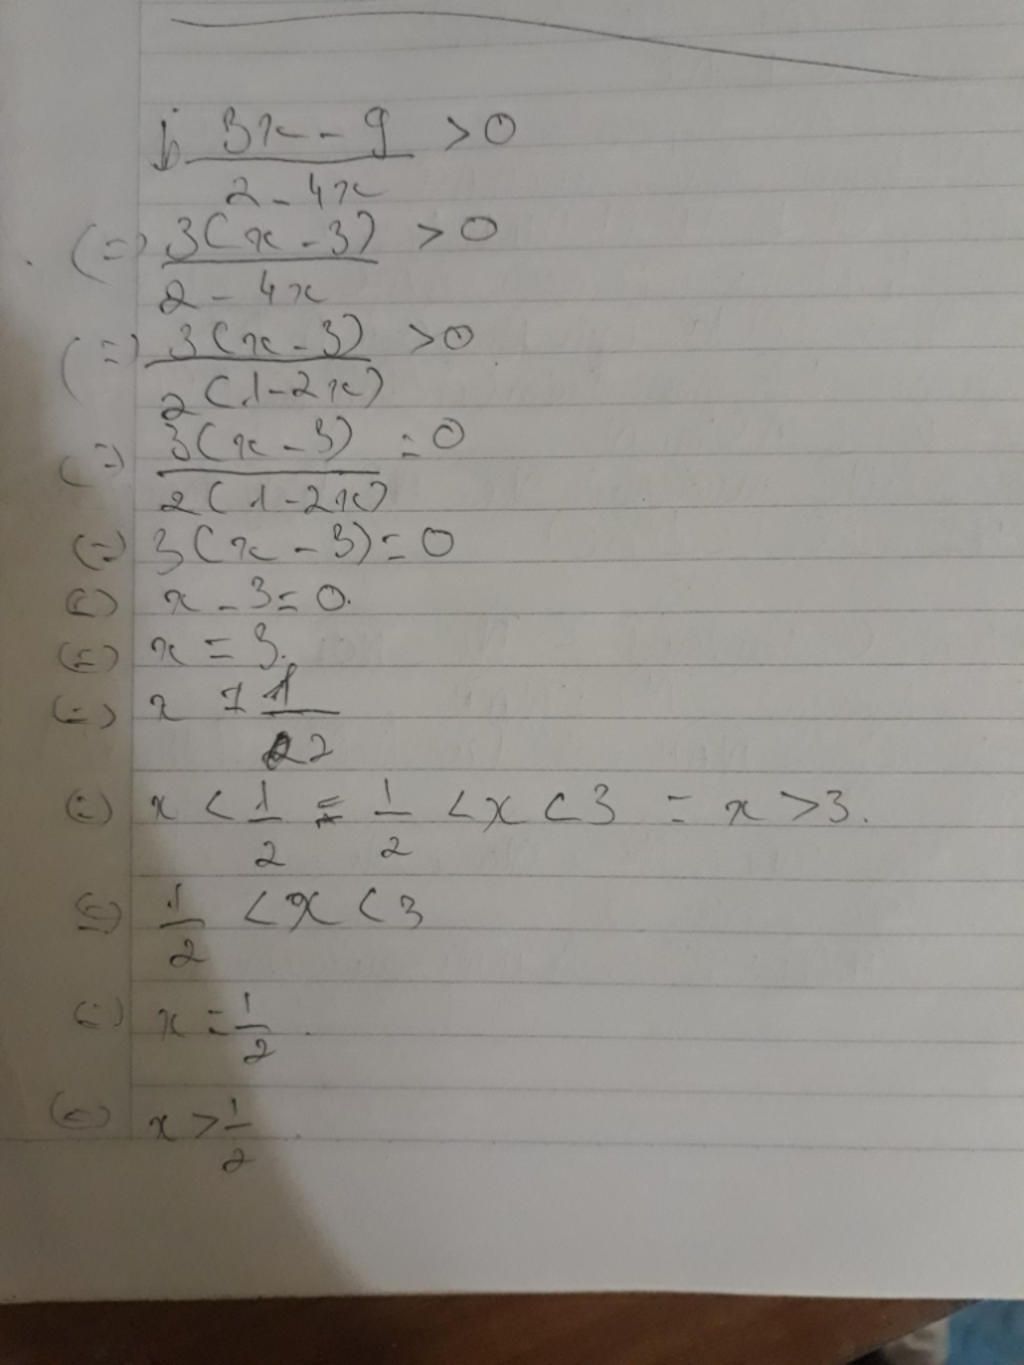 j, (3x - 9)/(2 - 4x) > 0
(=) 3(x - 3)/(2 - 4x) > 0
(=) 3(x - 3)/(2(1 - 2x)) > 0
(=) 3(x - 3)/(2(1 - 2x)) = 0
(=) 3(x - 3) = 0
(=) x - 3 = 0.
(=) x = 3.
(=) x 1/2
(=) x < 1/2 = 1/2 < x < 3 = x > 3.
(=) 1/2 < x < 3
(=) x = 1/2.
(=) x > 1/2.